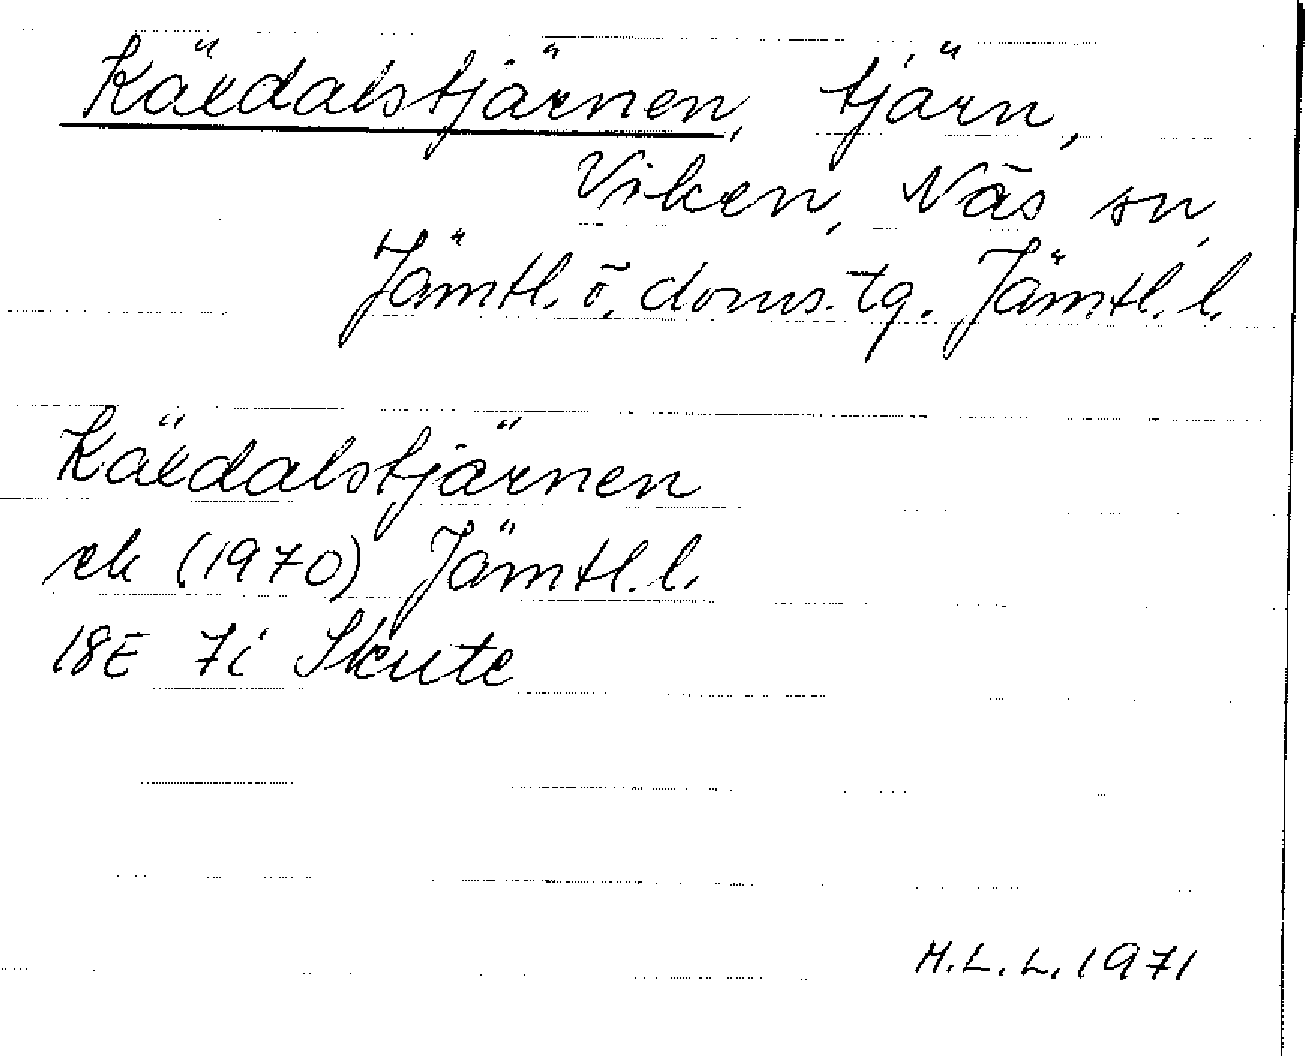 Kärdalstjärnen, tjärn,
Viken, Näs sn,
Jämtl. ö. doms.tg. Jämtl. l.
Kärdalstjärnen
ek (1970) Jämtl. l.
18E 7i Skute
H.L.L. 1971